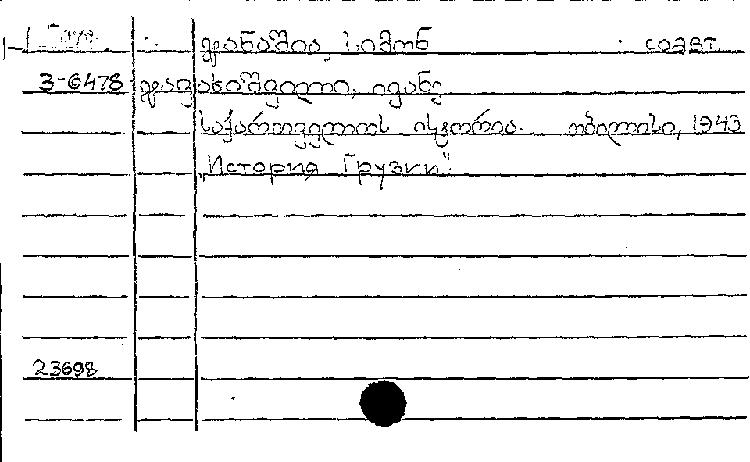 Груз. ჯანაშია, სიმონ соавт.
3-6478 ჯავახიშვილი, ივანე
საქართველოს ისტორია. თბილისი, 1943
„История Грузии".
23698